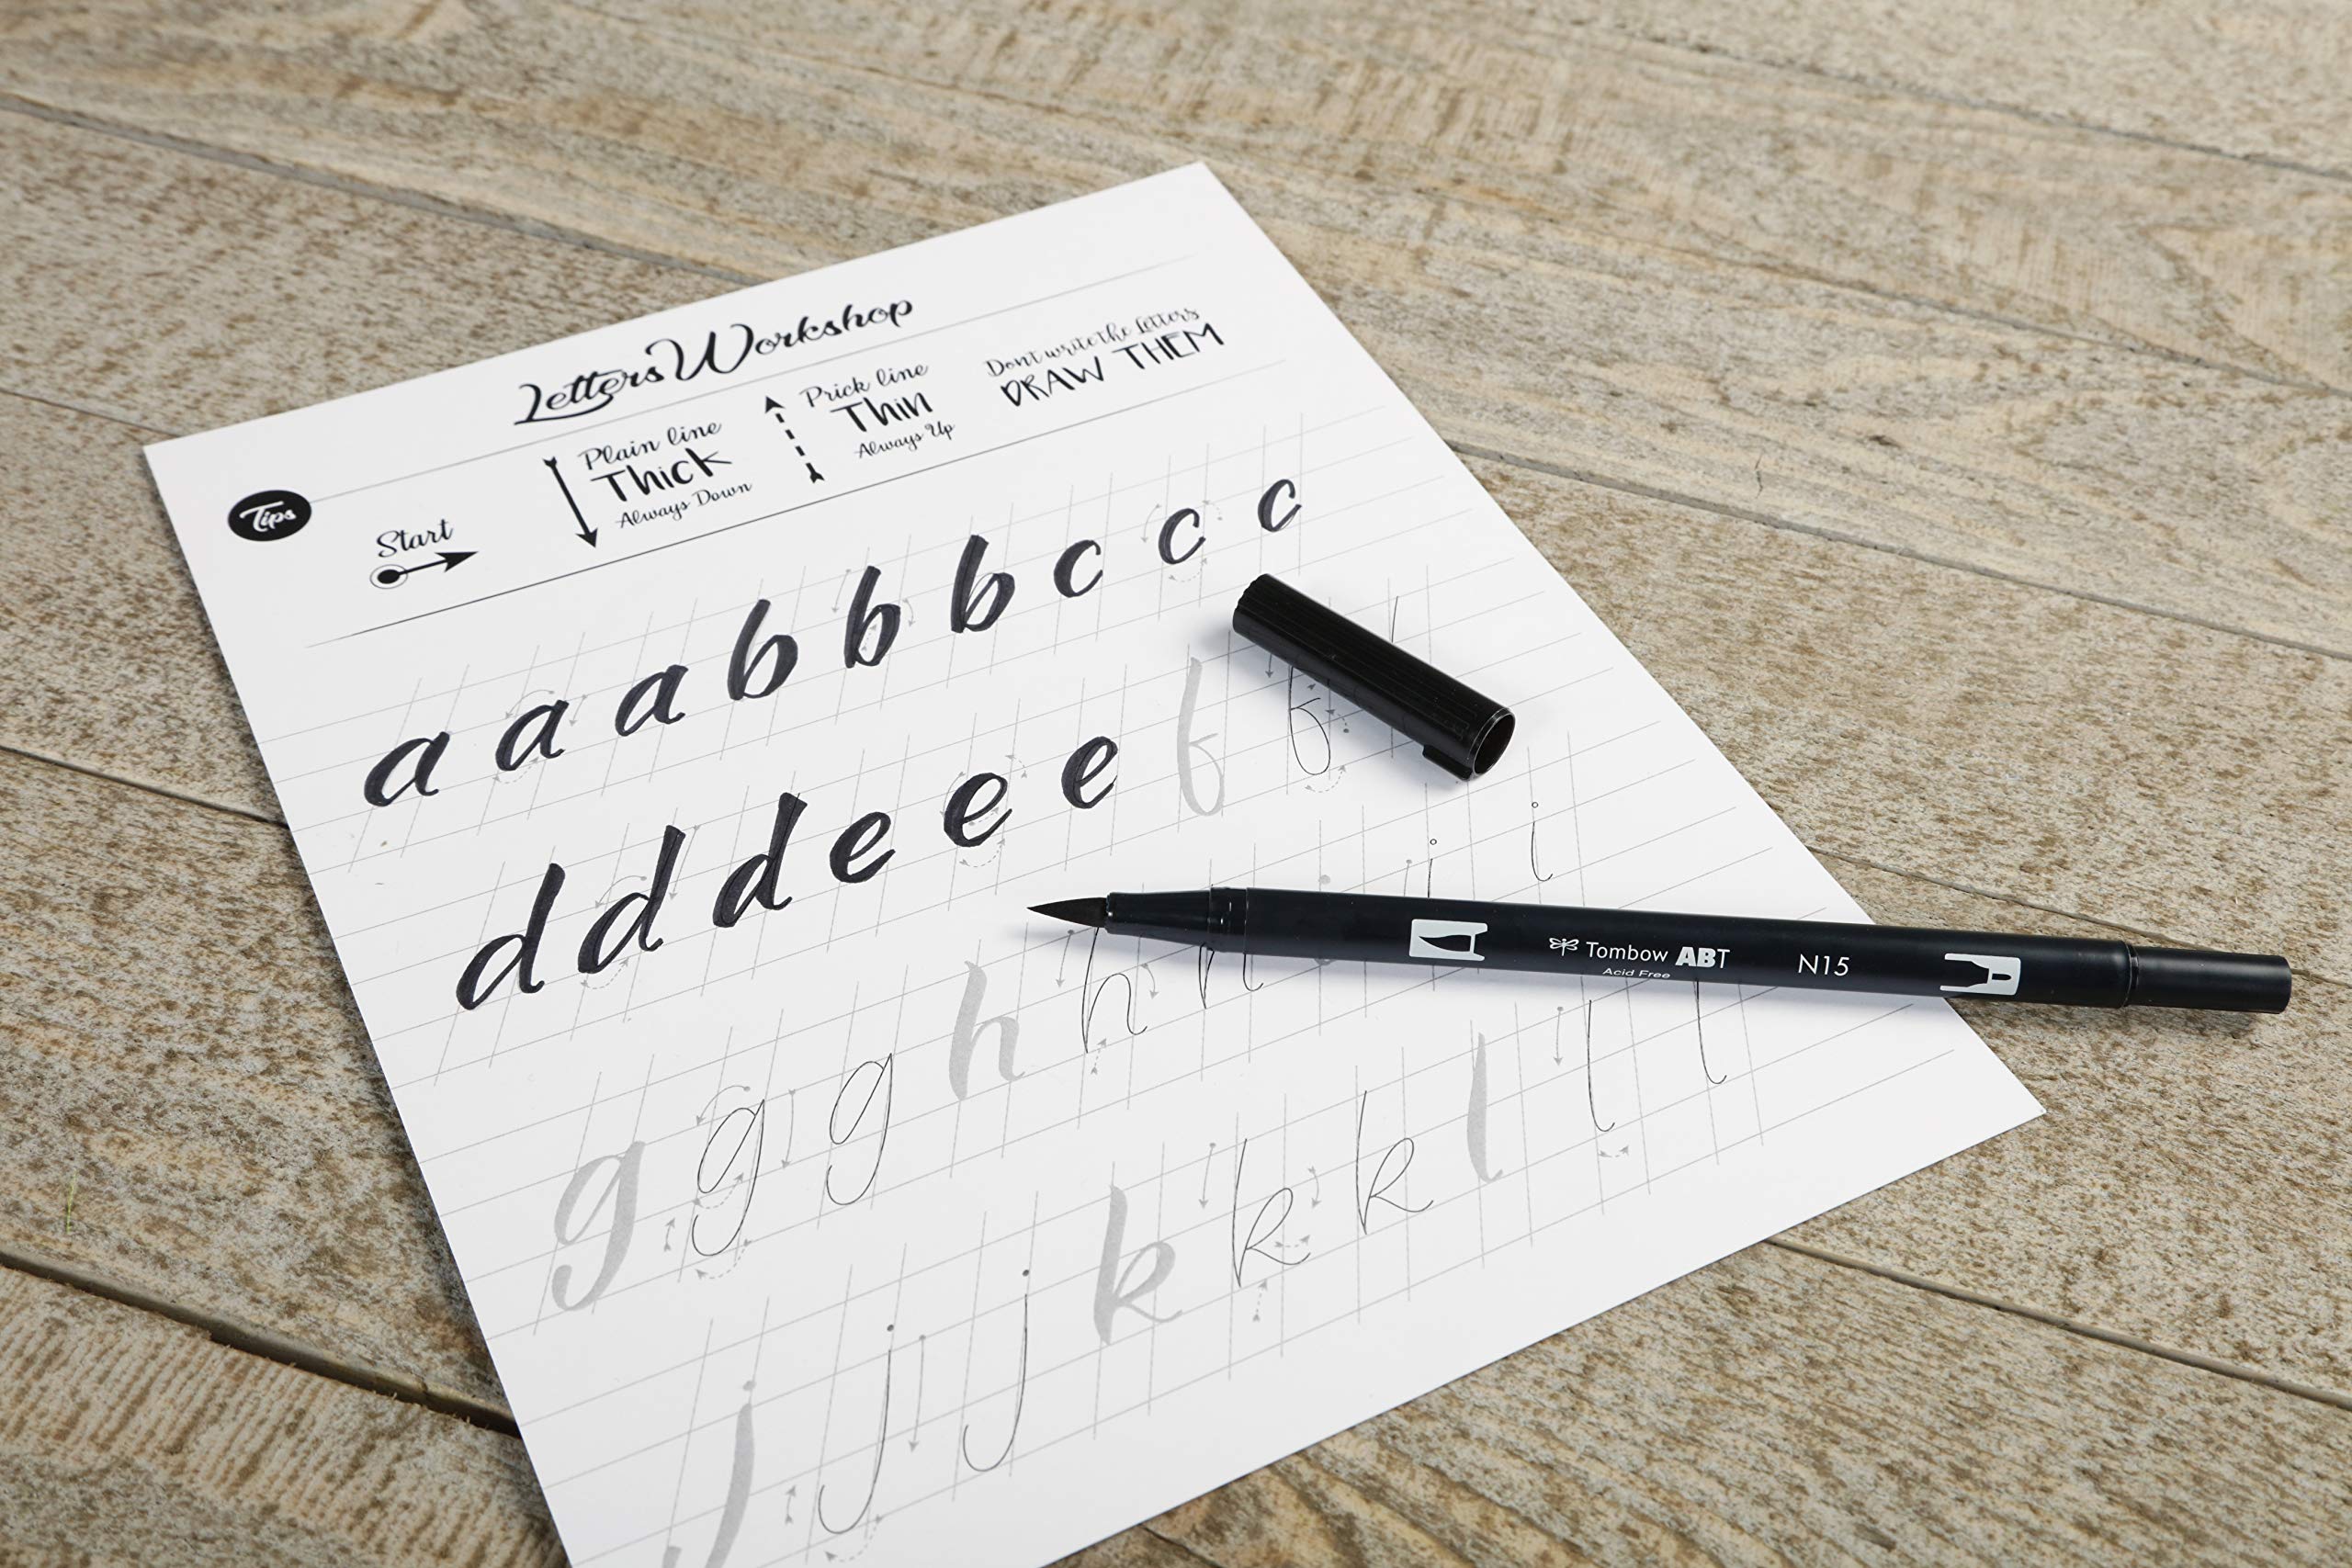 Letters Workshop
Tips
Start
Plain line
Thick
Always Down
Prick line
Thin
Always Up
Dont write the Letters
DRAW THEM
a a a b b b c c c
d d d e e e f f
g g g h h h i i
j j j k k k l l l
Tombow ABT N15
Acid Free